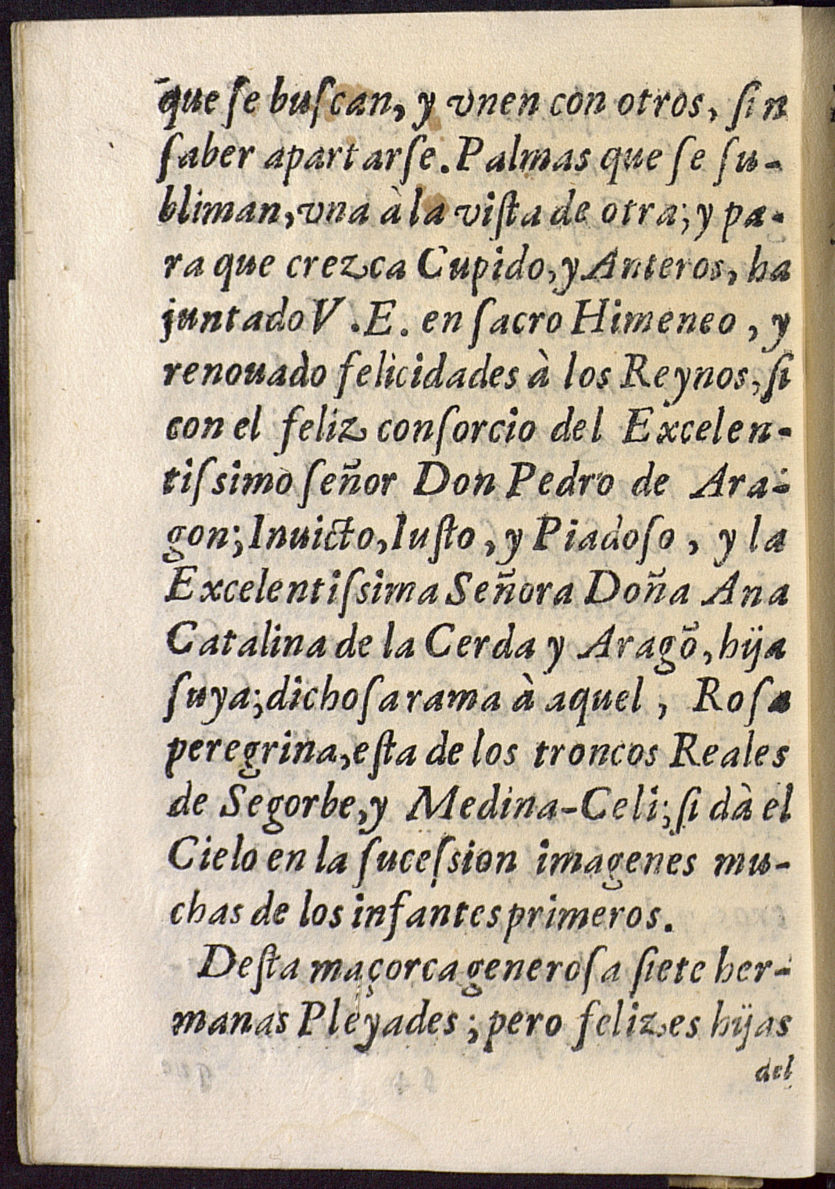 que ſe buſcan, y vnen con otros, ſin
ſaber apartarſe. Palmas que ſe ſu-
bliman, vna à la viſta de otra; y pa-
ra que crezca Cupido, y Anteros, ha
juntado V. E. en ſacro Himeneo, y
renouado felicidades à los Reynos, ſi
con el feliz conſorcio del Excelen-
tiſsimo ſeñor Don Pedro de Ara-
gon; Inuicto, Iuſto, y Piadoſo, y la
Excelentiſsima Señora Doña Ana
Catalina de la Cerda y Aragõ, hija
ſuya; dichoſa rama à aquel, Roſa
peregrina, eſta de los troncos Reales
de Segorbe, y Medina-Celi; ſi dà el
Cielo en la ſuceſsion imagenes mu-
chas de los infantes primeros.
Deſta maçorca generoſa ſiete her-
manas Pleyades; pero felizes hijas
del